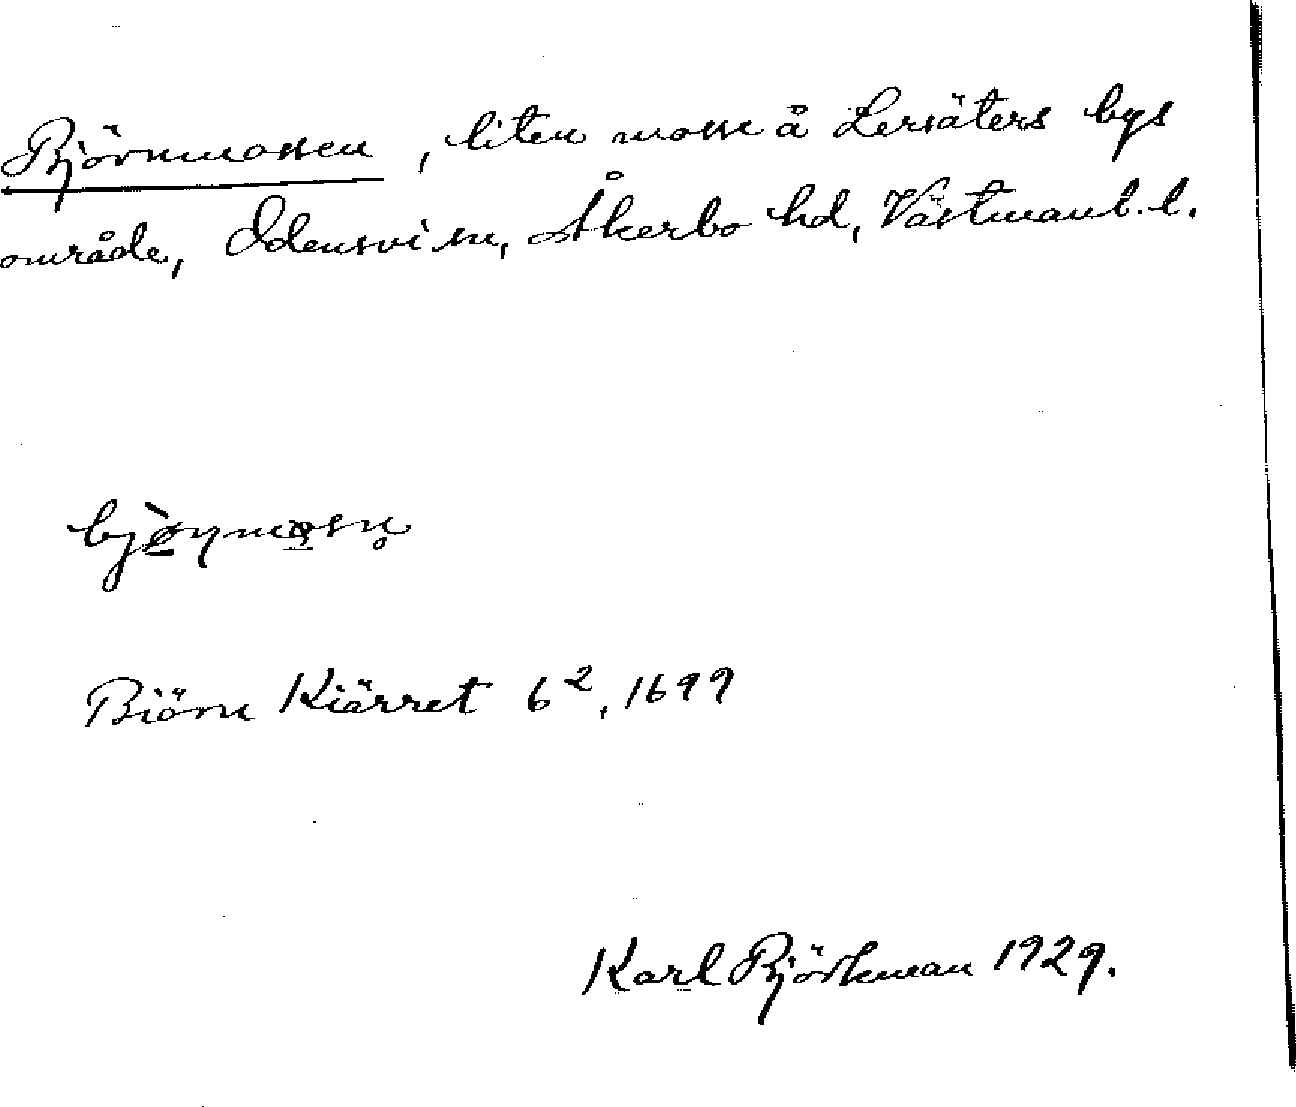 Björnmossen, liten mosse å Lersäters bys
område, Odensvi sn, Åkerbo hd, Västmanl. l.
Biörn Kiärret 6², 1699
Karl Björkman 1929.